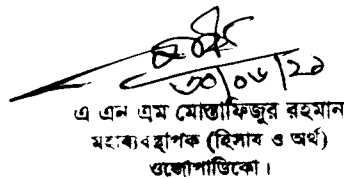 ৩০/০৬/২১
এ এন এম মোস্তাফিজুর রহমান
মহাব্যবস্থাপক (হিসাব ও অর্থ)
ওজোপাডিকো।